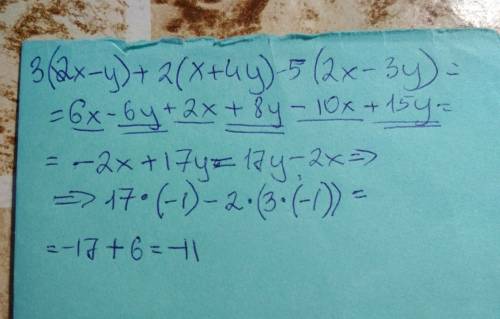 3(2x-y)+2(x+4y)-5(2x-3y)=
=6x-6y+2x+8y-10x+15y=
=-2x+17y=17y-2x=>
=>17·(-1)-2·(3·(-1))=
=-17+6=-11